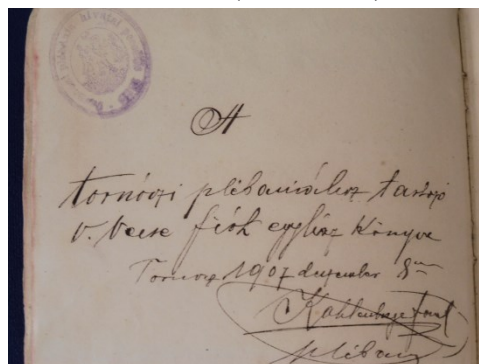 A
tornóczi plébániához tartozó
v. vecse fiók egyház könyve
Tornócz 1907 deczember 8
plébán